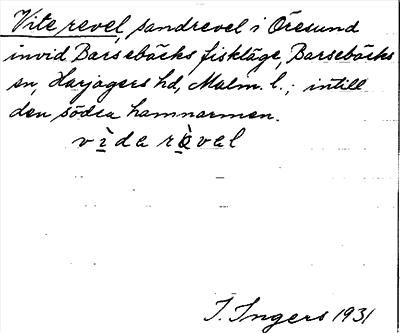 Vite revel, sandrevel i Öresund
invid Barsebäcks fiskläge, Barsebäcks
sn, Harjagers hd, Malm. l.; intill
den södra hamnarmen.
vìda rèvel
I. Ingers 1931